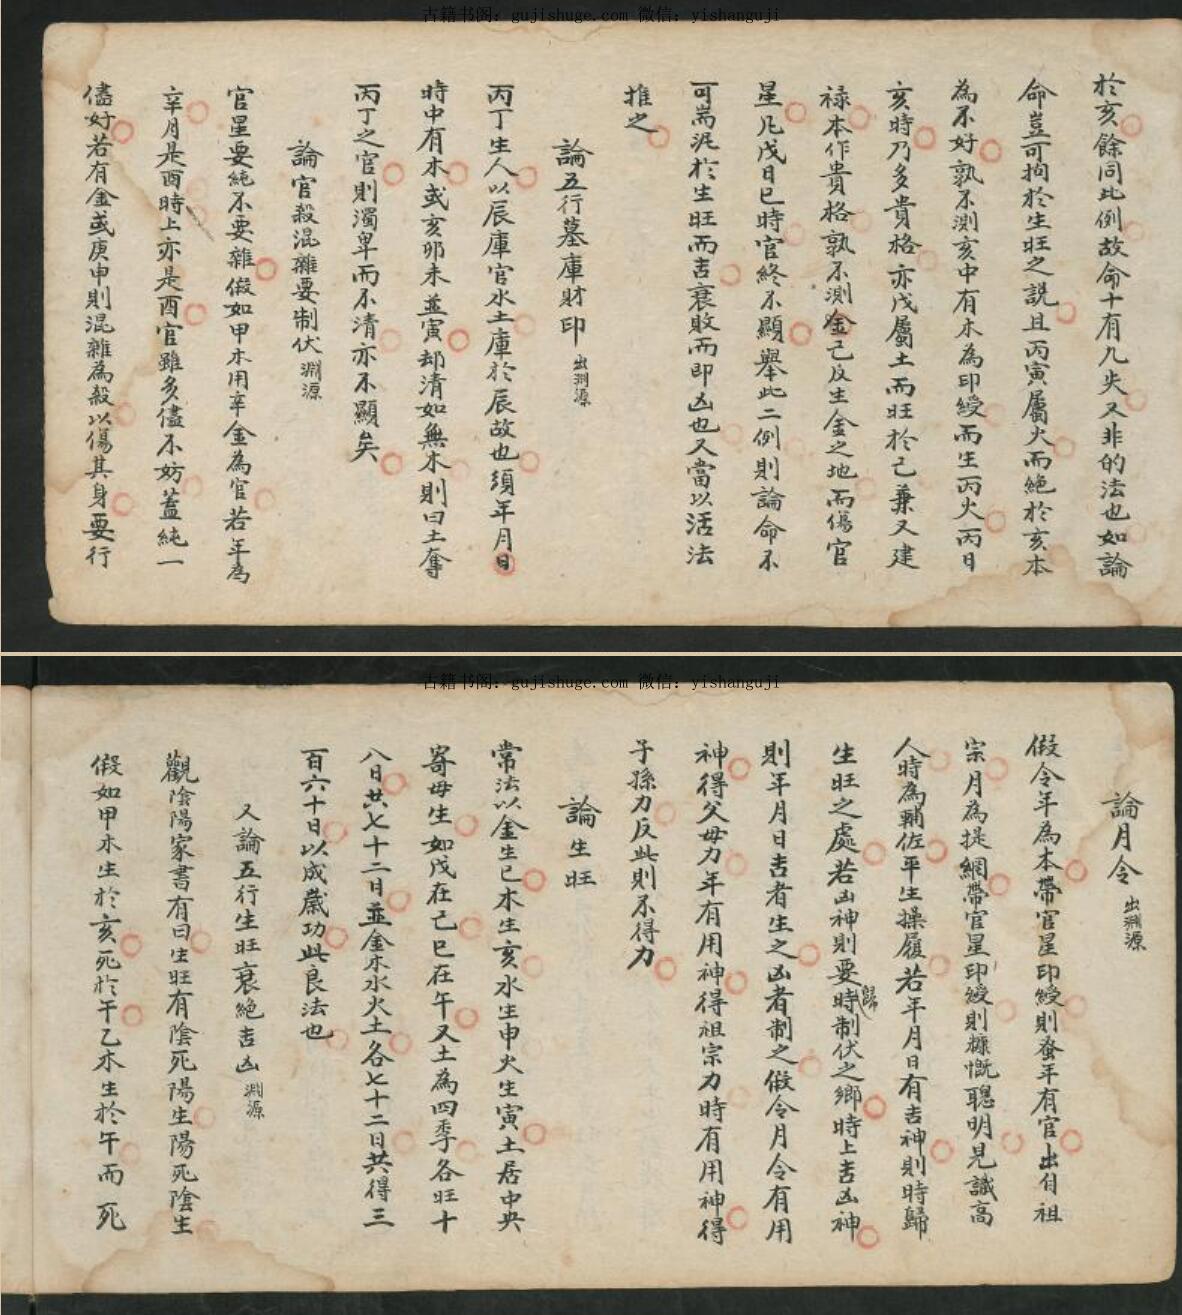 古籍书阁：gujishuge.com 微信：yishanguji
於亥餘同此例故命十有九失又非的法也如論
命豈可拘於生旺之説且丙寅屬火而絶於亥本
為不好孰不測亥中有木為印綬而生丙火丙日
亥時乃多貴格亦戊屬土而旺於己兼又建
禄本作貴格孰不測金己反生金之地而傷官
星凡戊日巳時官終不顯舉此二例則論命不
可耑泥於生旺而吉衰敗而即凶也又當以活法
推之
論五行墓庫財印 出淵源
丙丁生人以辰庫官水土庫於辰故也須年月日
時中有木或亥卯未並寅却清如無木則曰土奪
丙丁之官則濁卑而不清亦不顯矣
論官殺混雜要制伏 淵源
官星要純不要雜假如甲木用辛金為官若年為
辛月是酉時上亦是酉官雖多儘不妨蓋純一
儘好若有金或庚申則混雜為殺以傷其身要行
古籍书阁：gujishuge.com 微信：yishanguji
論月令 出淵源
假令年為本帶官星印綬則發年有官出自祖
宗月為提綱帶官星印綬則慷慨聰明見識高
人時為輔佐平生操履若年月日有吉神則時歸
生旺之處若凶神則要時歸制伏之鄉時上吉凶神
則年月日吉者生之凶者制之假令月令有用
神得父母力年有用神得祖宗力時有用神得
子孫力反此則不得力
論生旺
常法以金生巳木生亥水生申火生寅土居中央
寄母生如戊在己巳在午又土為四季各旺十
八日共七十二日並金木水火土各七十二日共得三
百六十日以成歲功此良法也
又論五行生旺衰絶吉凶 淵源
觀陰陽家書有曰生旺有陰死陽生陽死陰生
假如甲木生於亥死於午乙木生於午而死